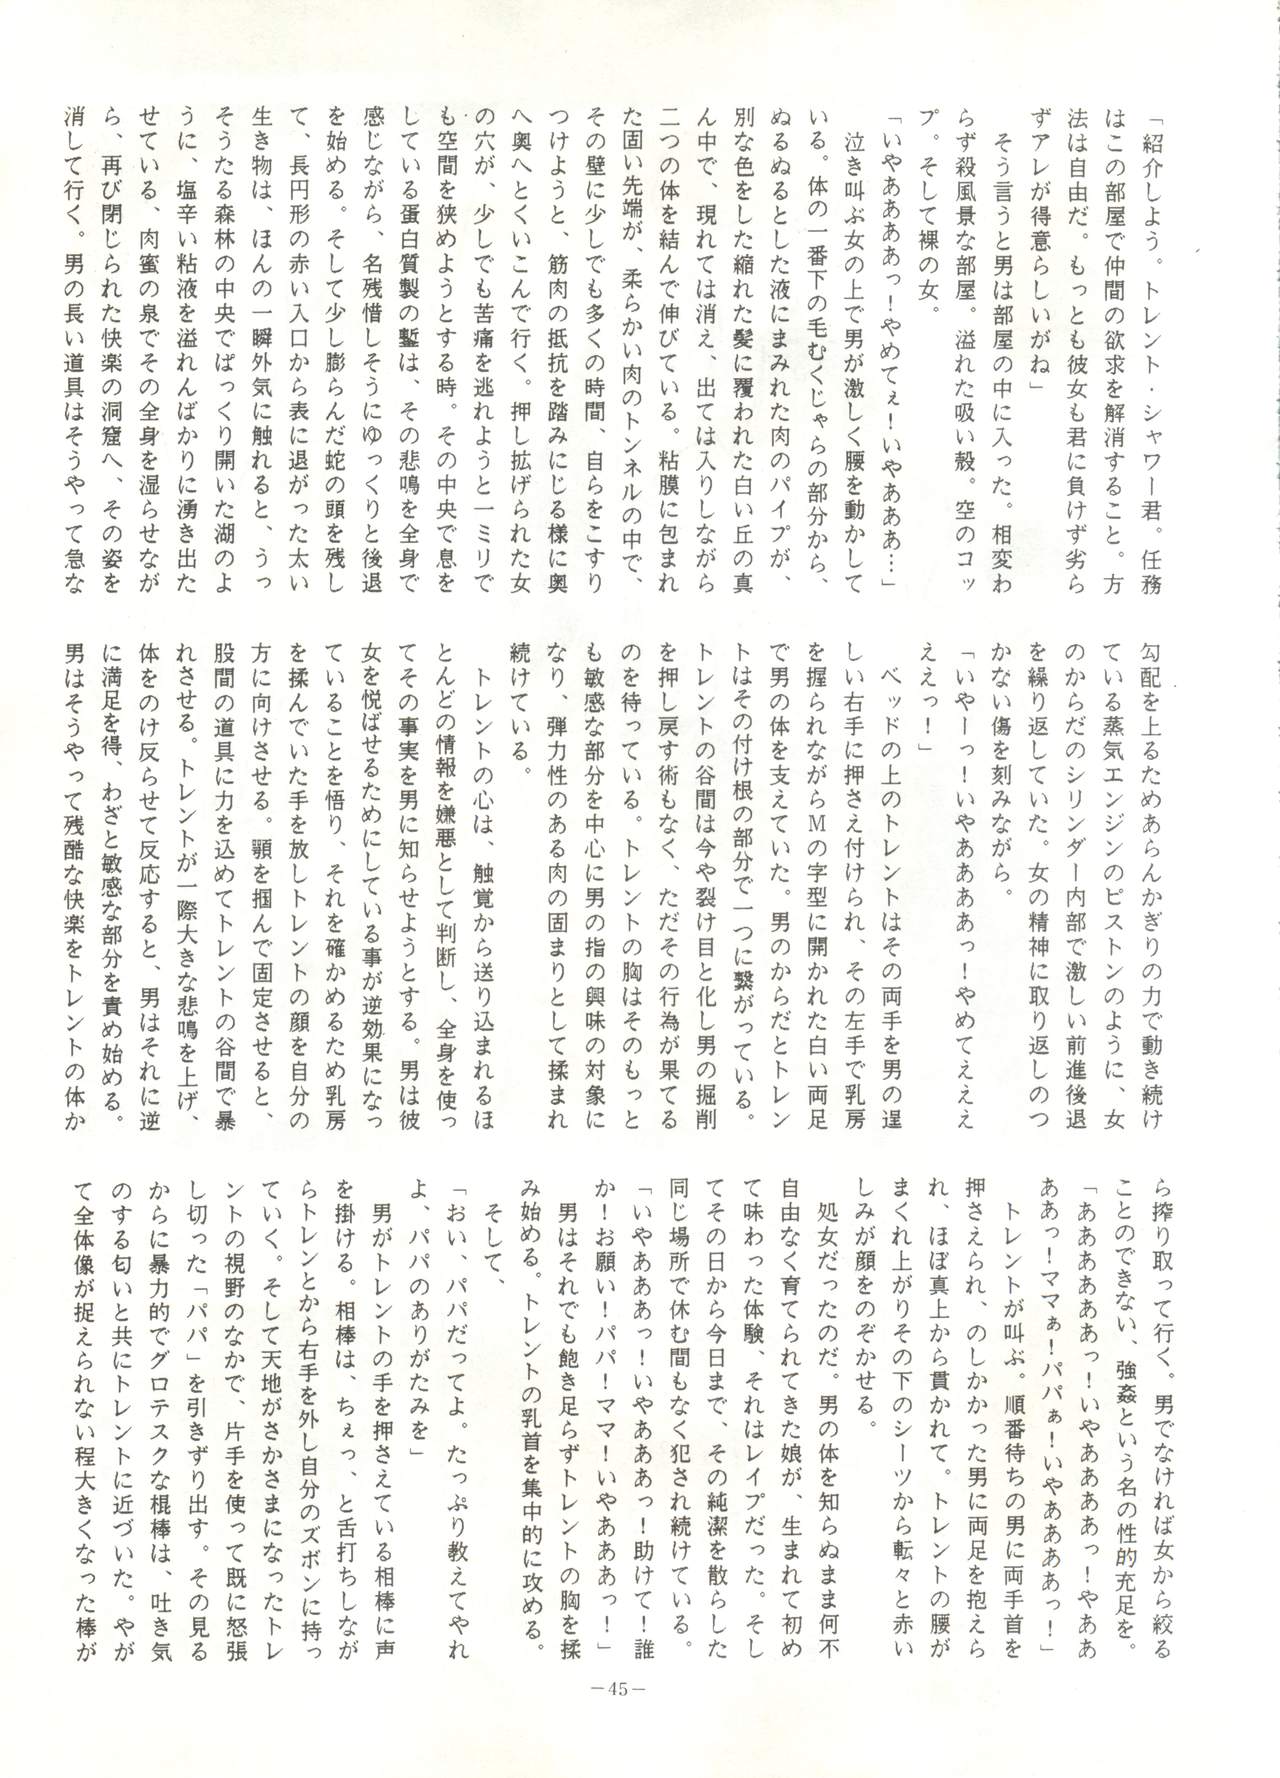 「紹介しよう。トレント・シャワー君。任務
はこの部屋で仲間の欲求を解消すること。方
法は自由だ。もっとも彼女も君に負けず劣ら
ずアレが得意らしいがね」
そう言うと男は部屋の中に入った。相変わ
らず殺風景な部屋。溢れた吸い殻。空のコッ
プ。そして裸の女。
「いやああああっ！やめてぇ！いやあああ…」
泣き叫ぶ女の上で男が激しく腰を動かして
いる。体の一番下の毛むくじゃらの部分から、
ぬるぬるとした液にまみれた肉のパイプが、
別な色をした縮れた髪に覆われた白い丘の真
ん中で、現れては消え、出ては入りしながら
二つの体を結んで伸びている。粘膜に包まれ
た固い先端が、柔らかい肉のトンネルの中で、
その壁に少しでも多くの時間、自らをこすり
つけようと、筋肉の抵抗を踏みにじる様に奥
へ奥へとくいこんで行く。押し拡げられた女
の穴が、少しでも苦痛を逃れようと一ミリで
も空間を狭めようとする時。その中央で息を
している蛋白質製の鏨は、その悲鳴を全身で
感じながら、名残惜しそうにゆっくりと後退
を始める。そして少し膨らんだ蛇の頭を残し
て、長円形の赤い入口から表に退がった太い
生き物は、ほんの一瞬外気に触れると、うっ
そうたる森林の中央でぱっくり開いた湖のよ
うに、塩辛い粘液を溢れんばかりに湧き出た
せている、肉蜜の泉でその全身を湿らせなが
ら、再び閉じられた快楽の洞窟へ、その姿を
消して行く。男の長い道具はそうやって急な
勾配を上るためあらんかぎりの力で動き続け
ている蒸気エンジンのピストンのように、女
のからだのシリンダー内部で激しい前進後退
を繰り返していた。女の精神に取り返しのつ
かない傷を刻みながら。
「いやーっ！いやああああっ！やめてえええ
ええっ！」
ベッドの上のトレントはその両手を男の逞
しい右手に押さえ付けられ、その左手で乳房
を握られながらＭの字型に開かれた白い両足
で男の体を支えていた。男のからだとトレン
トはその付け根の部分で一つに繋がっている。
トレントの谷間は今や裂け目と化し男の掘削
を押し戻す術もなく、ただその行為が果てる
のを待っている。トレントの胸はそのもっと
も敏感な部分を中心に男の指の興味の対象に
なり、弾力性のある肉の固まりとして揉まれ
続けている。
トレントの心は、触覚から送り込まれるほ
とんどの情報を嫌悪として判断し、全身を使っ
てその事実を男に知らせようとする。男は彼
女を悦ばせるためにしている事が逆効果になっ
ていることを悟り、それを確かめるため乳房
を揉んでいた手を放しトレントの顔を自分の
方に向けさせる。顎を掴んで固定させると、
股間の道具に力を込めてトレントの谷間で暴
れさせる。トレントが一際大きな悲鳴を上げ、
体をのけ反らせて反応すると、男はそれに逆
に満足を得、わざと敏感な部分を責め始める。
男はそうやって残酷な快楽をトレントの体か
ら搾り取って行く。男でなければ女から絞る
ことのできない、強姦という名の性的充足を。
「ああああああっ！いやああああっ！やああ
ああっ！ママぁ！パパぁ！いやああああっ！」
トレントが叫ぶ。順番待ちの男に両手首を
押さえられ、のしかかった男に両足を抱えら
れ、ほぼ真上から貫かれて。トレントの腰が
まくれ上がりその下のシーツから転々と赤い
しみが顔をのぞかせる。
処女だったのだ。男の体を知らぬまま何不
自由なく育てられてきた娘が、生まれて初め
て味わった体験、それはレイプだった。そし
てその日から今日まで、その純潔を散らした
同じ場所で休む間もなく犯され続けている。
「いやああああっ！いやああああっ！助けて！誰
か！お願い！パパ！ママ！いやあああっ！」
男はそれでも飽き足らずトレントの胸を揉
み始める。トレントの乳首を集中的に攻める。
そして、
「おい、パパだってよ。たっぷり教えてやれ
よ、パパのありがたみを」
男がトレントの手を押さえている相棒に声
を掛ける。相棒は、ちぇっ、と舌打ちしなが
らトレンとから右手を外し自分のズボンに持っ
ていく。そして天地がさかさまになったトレ
ントの視野のなかで、片手を使って既に怒張
し切った「パパ」を引きずり出す。その見る
からに暴力的でグロテスクな棍棒は、吐き気
のする匂いと共にトレントに近づいた。やが
て全体像が捉えられない程大きくなった棒が
－45－